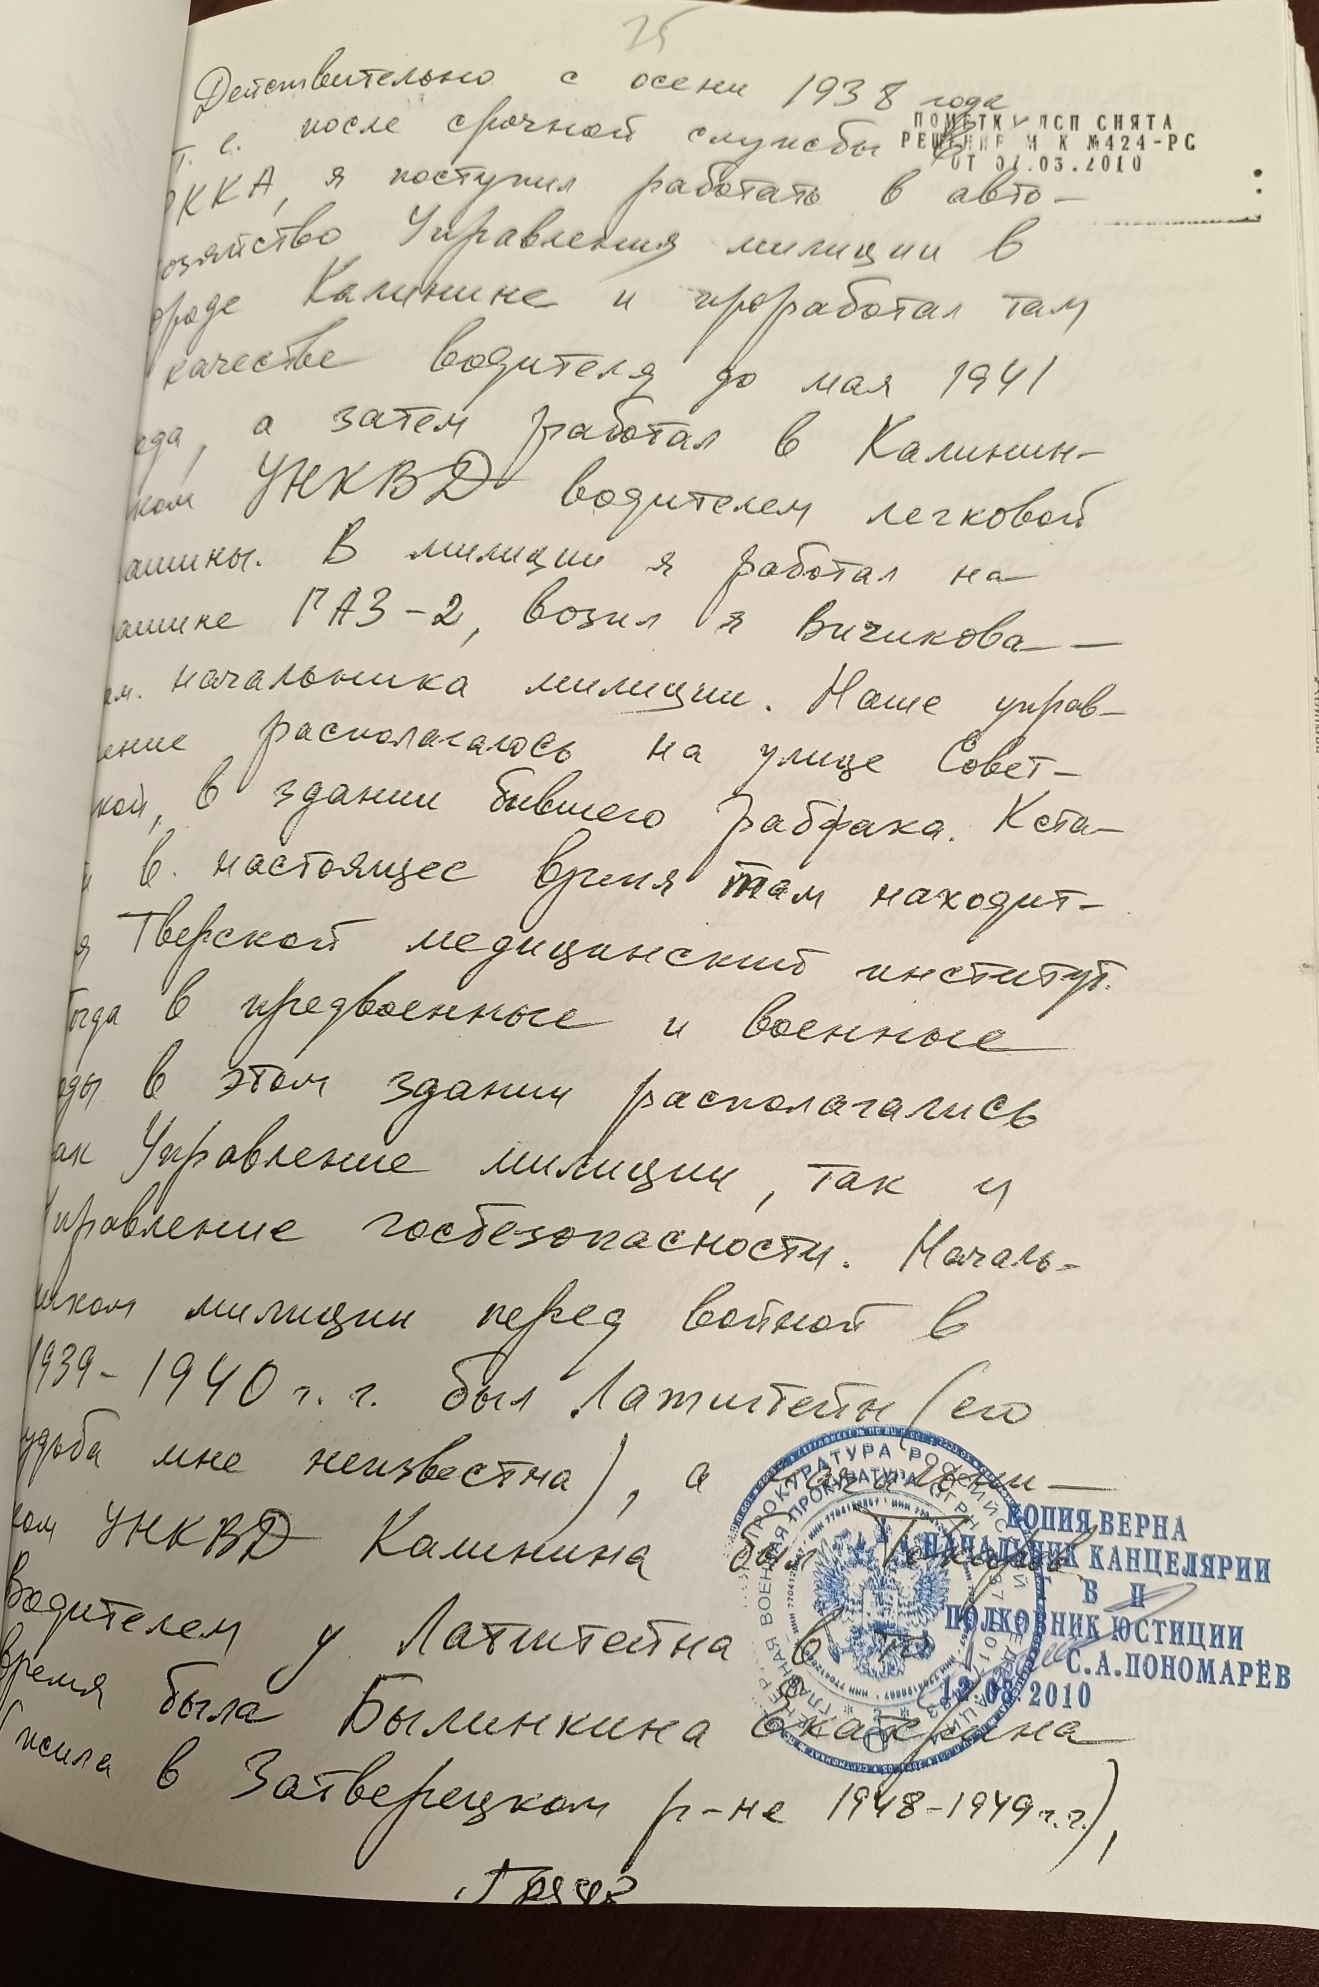 25
Действительно с осени 1938 года
т. е. после срочной службы в
РККА, я поступил работать в авто-
озяйство Управления милиции в
ороде Калинине и проработал там
качестве водителя до мая 1941
ода, а затем работал в Калинин-
ком УНКВД водителем легковой
ашины. В милиции я работал на
ашине ГАЗ-2, возил я Вичикова —
ам. начальника милиции. Наше управ-
ение располагалось на улице Совет-
кой, в здании бывшего рабфака. Кста-
и в настоящее время там находит-
я Тверской медицинский институт.
Тогда в предвоенные и военные
оды в этом здании располагались
ак Управление милиции, так и
Управление госбезопасности. Началь-
иком милиции перед войной в
1939-1940 г. г. был Латштейн (его
удьба мне неизвестна), а начальни-
ком УНКВД Калинина был Токарев
Водителем у Латштейна в то
время была Былинкина Екатерина
(жила в Затверецком р-не 1948-1949 г.г.),
ПОМЕТКА ДСП СНЯТА
РЕШЕНИЕ М К №424-РС
ОТ 04.03.2010
КОПИЯ ВЕРНА
НАЧАЛЬНИК КАНЦЕЛЯРИИ
В П
ПОЛКОВНИК ЮСТИЦИИ
С.А.ПОНОМАРЁВ
2010
ПРОКУРАТУРА РОССИЙСКОЙ ФЕДЕРАЦИИ
ГЛАВНАЯ ВОЕННАЯ ПРОКУРАТУРА ОГРН